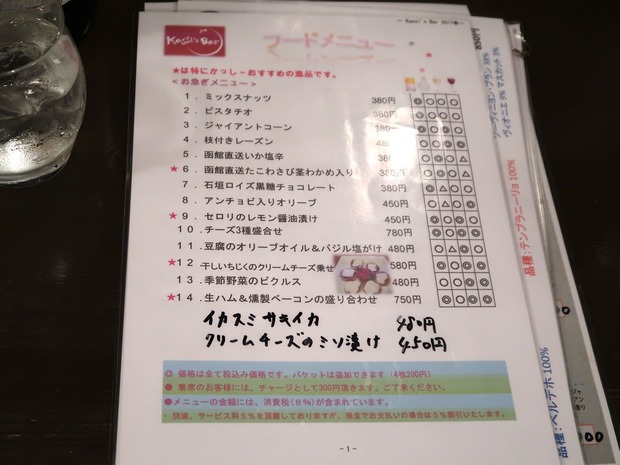 ~ Kassi's Bar 2017
Kassi's Bar
フードメニュー
★は特にかっし－おすすめの逸品です。
＜お急ぎメニュー＞
1．ミックスナッツ 380円 ◎ ○ ○ ○
2．ピスタチオ 380円
3．ジャイアントコーン 380円
4．枝付きレーズン 480
5．函館直送いか塩辛 380円
★6．函館直送たこわさび茎わかめ入り 380円
7．石垣ロイズ黒糖チョコレート 380円
8．アンチョビ入りオリーブ 450円
★9．セロリのレモン醤油漬け 450円
10．チーズ3種盛合せ 780円
11．豆腐のオリーブオイル＆バジル塩がけ 480円
★12．干しいちじくのクリームチーズ乗せ 580円
13．季節野菜のピクルス 480円
★14．生ハム＆燻製ベーコンの盛り合わせ 750円
イカスミサキイカ 480円
クリームチーズのミソ漬け 450円
◎ 価格は全て税込み価格です。バケットは追加できます（4枚200円）
● 着席のお客様には、チャージとして300円頂きます。ご了承ください。
●メニューの金額には、消費税（8％）が含まれています。
・別途、サービス料5％を頂戴しておりますが、現金でお支払いの場合は5％割引いたします。
-1-
850円
ソーヴィニヨン・ブラン
ヴィオニエ 5% マスカット 2%
品種：テンプラニーリョ 100%
品種：ベルデホ 100%